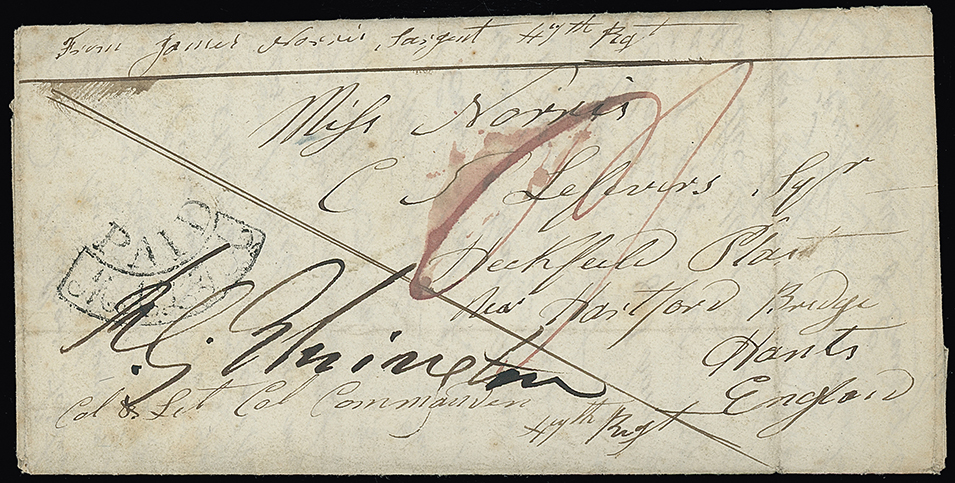 From James Norris Sargent 47th Rgt
Miss Norris
C S Lefevers Sqr
Heckfield Place
Near Hartford Bridge
Hants
England
PAID
Col & Let Col Commanden
47th Regt